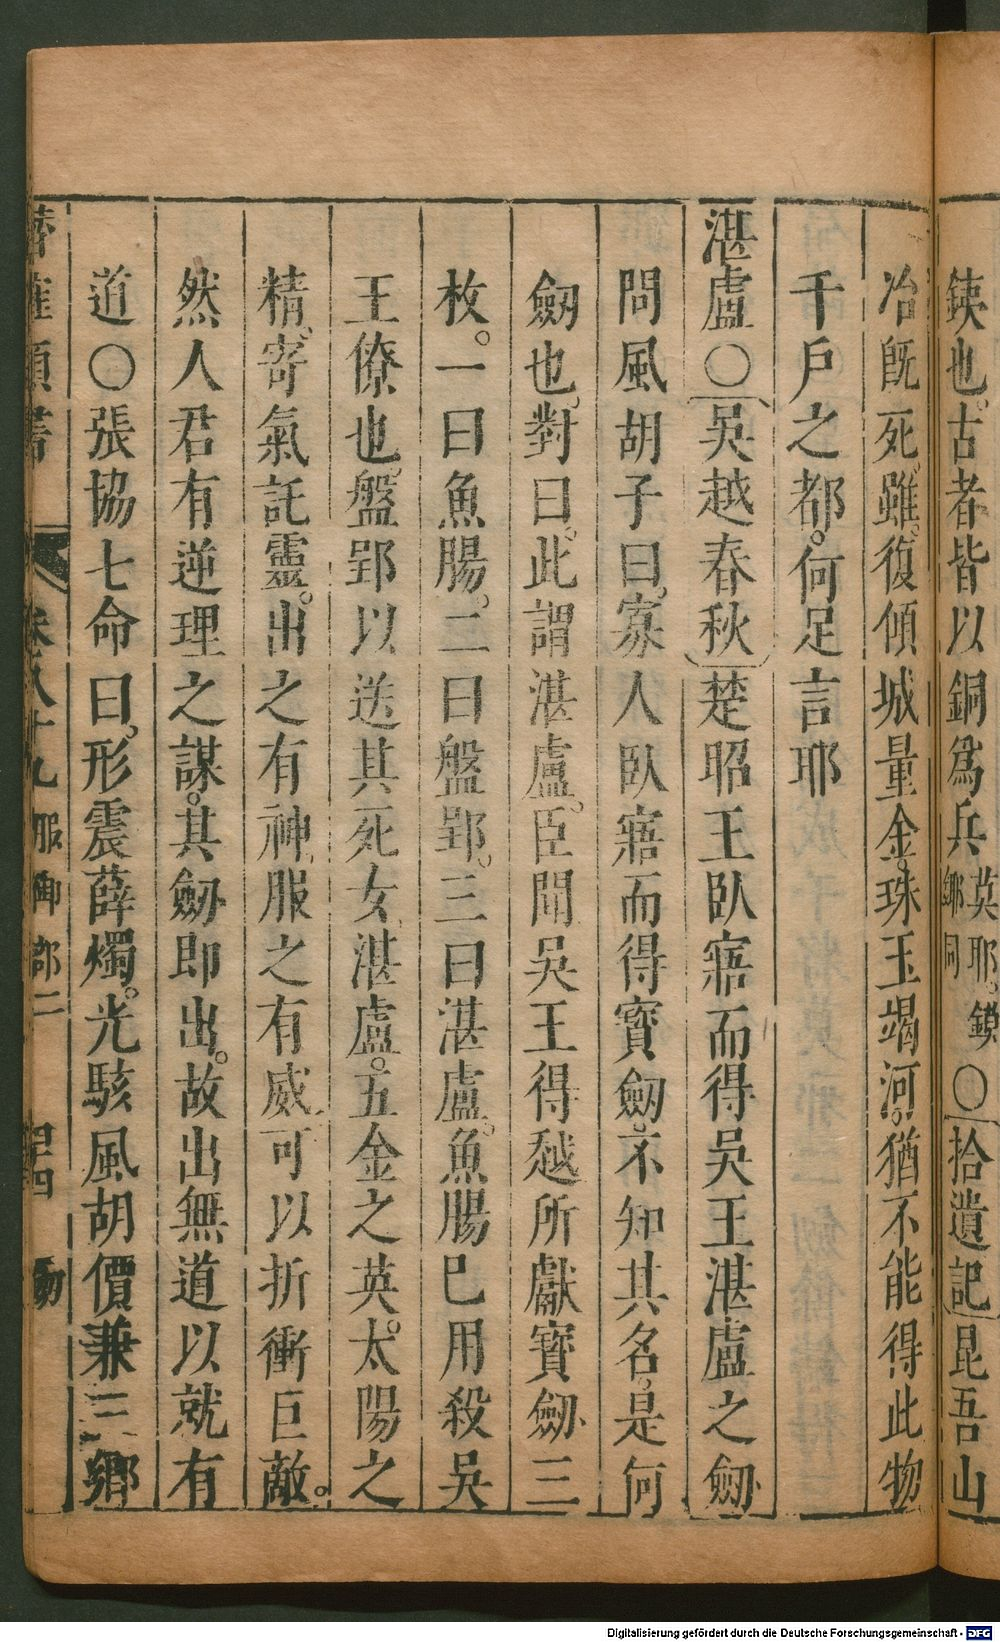 鋏也。古者皆以銅爲兵莫耶。鏌鎁同〇拾遺記昆吾山
冶旣死。雖復傾城量金。珠玉竭河。猶不能得此物
千戶之都。何足言耶
湛盧〇吳越春秋楚昭王臥寤而得吳王湛盧之劔
問風胡子曰。寡人臥寤而得寶劔。不知其名。是何
劔也。對曰。此謂湛盧。臣聞吳王得越所獻寶劔三
枚。一曰魚腸。二曰盤郢。三曰湛盧。魚腸已用殺吳
王僚也。盤郢以送其死女。湛盧。五金之英。太陽之
精。寄氣託靈。出之有神。服之有威。可以折衝巨敵。
然人君有逆理之謀。其劔即出。故出無道以就有
道〇張協七命曰。形震薛燭。光駭風胡價兼三鄉
卷八十九 服御部二
Digitalisierung gefördert durch die Deutsche Forschungsgemeinschaft - DFG